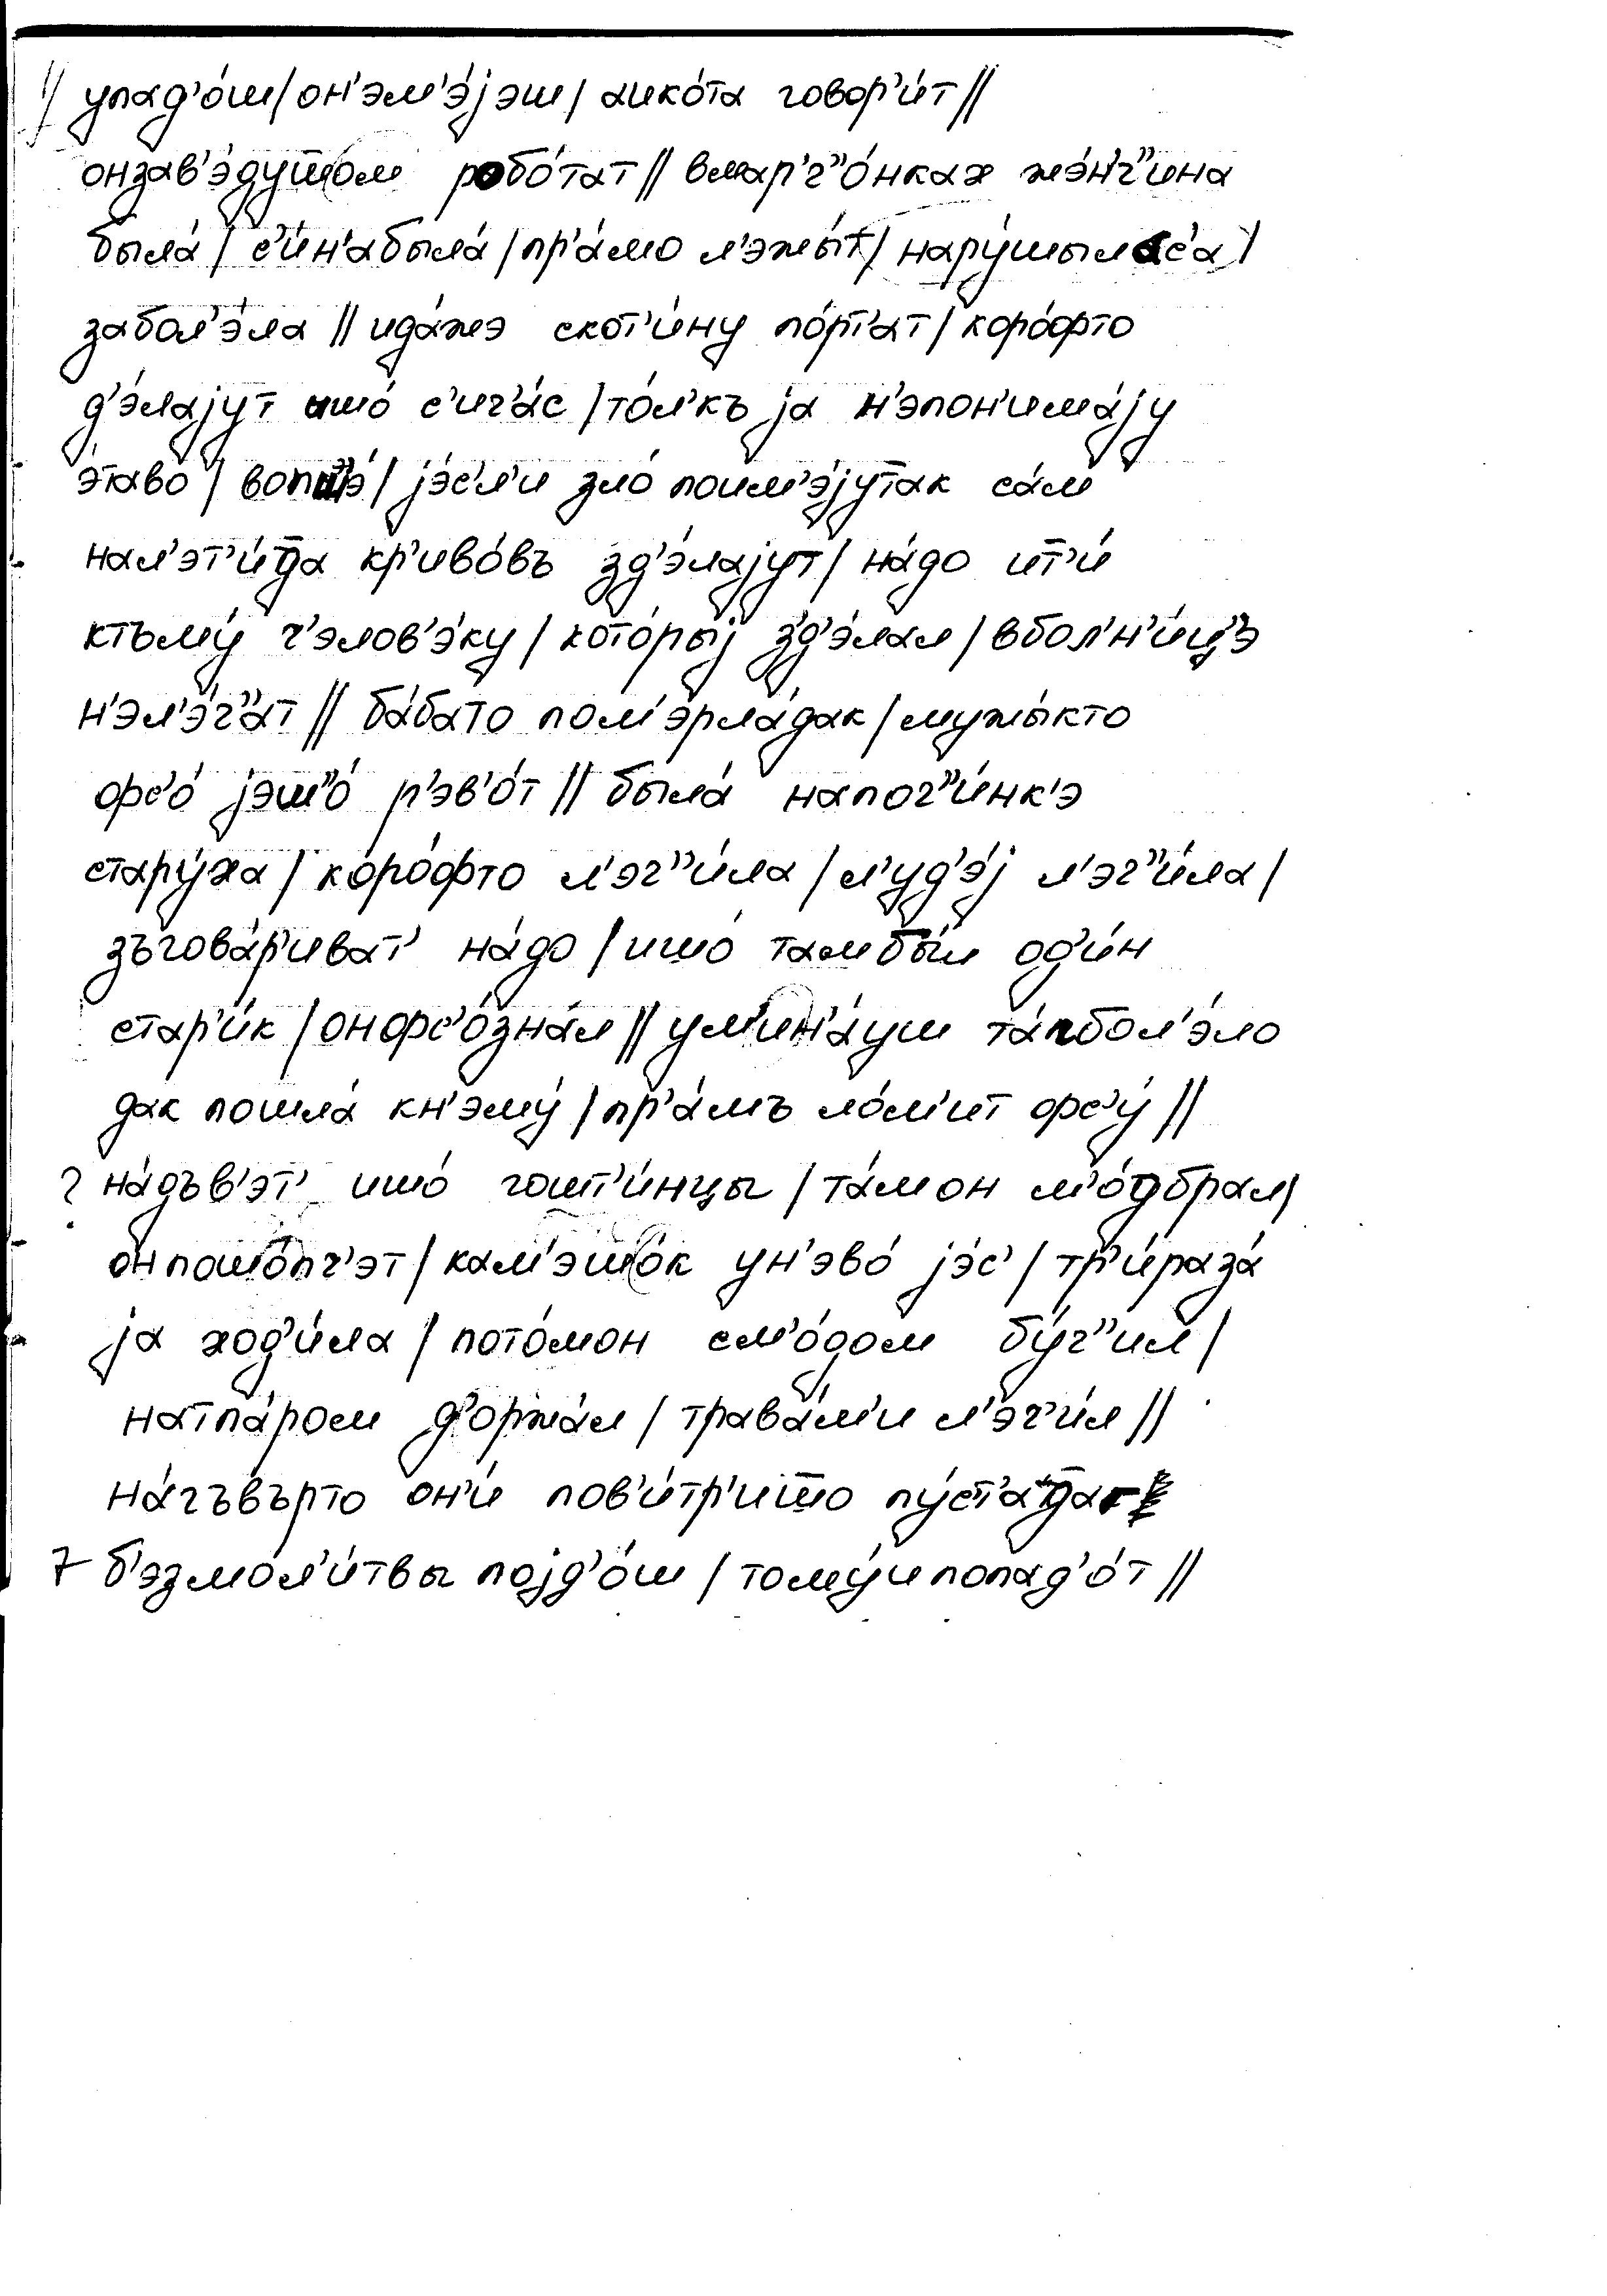 // упад'о́ш/он'эм'э́jэш/ аико́та говор'и́т//
онзав'э́душшом робо́тат// вмар'ч"о́нках жэ́н'ч"ина
была́/ с'и́н'абыла́/пр'а́мо л'эжы́т/ нару́шылас'а/
забол'э́ла// ида́жэ скот'и́ну по́рт'ат/ коро́фто
д'э́лаjут ишо́ с'ич'а́с/то́л'къ jа н'эпон'има́jу
э́таво/ вопшэ́/ jэ́с'л'и зло́ поим'э́jутак са́м
нал'эт'и́тда кр'иво́въ зд'э́лаjут/ на́до ит'и́
ктъму́ ч'элов'э́ку/ кото́рыj з'д'э́лал/ вбол'н'и́ц'э
н'эл'э́ч"ат// ба́бато пом'эрла́дак/мужы́кто
офс'о́ jэш"о́ р'эв'о́т// была́ напоч"и́нк'э
стару́ха/ коро́фто л'эч"и́ла/л'уд'э́j л'эч"и́ла/
зъгова́р'иват' на́до/ишо́ тамбы́л од'и́н
стар'и́к/онофс'о́зна́л// ум'ин'а́уш та́пбол'э́ло
дак пошла́ кн'эму́/пр'а́мъ ло́м'ит офс'у́//
? на́дъв'эт' ишо́ гошт'и́нцы/ та́мон м'о́дбрал/
онпошо́пч'эт/ кам'эшо́к ун'эво́ jэ́с'/ тр'и́раза́
jа ход'и́ла/ пото́мон см'о́дом бу́ч"ил/
натпа́ром д'оржа́л/ трава́м'и л'эч'и́л//
на́гъвърто он'и́ пов'и́тр'ишшо пу́ст'атдак
7 б'эзмол'и́твы поjд'о́ш/ тому́ипопад'о́т//